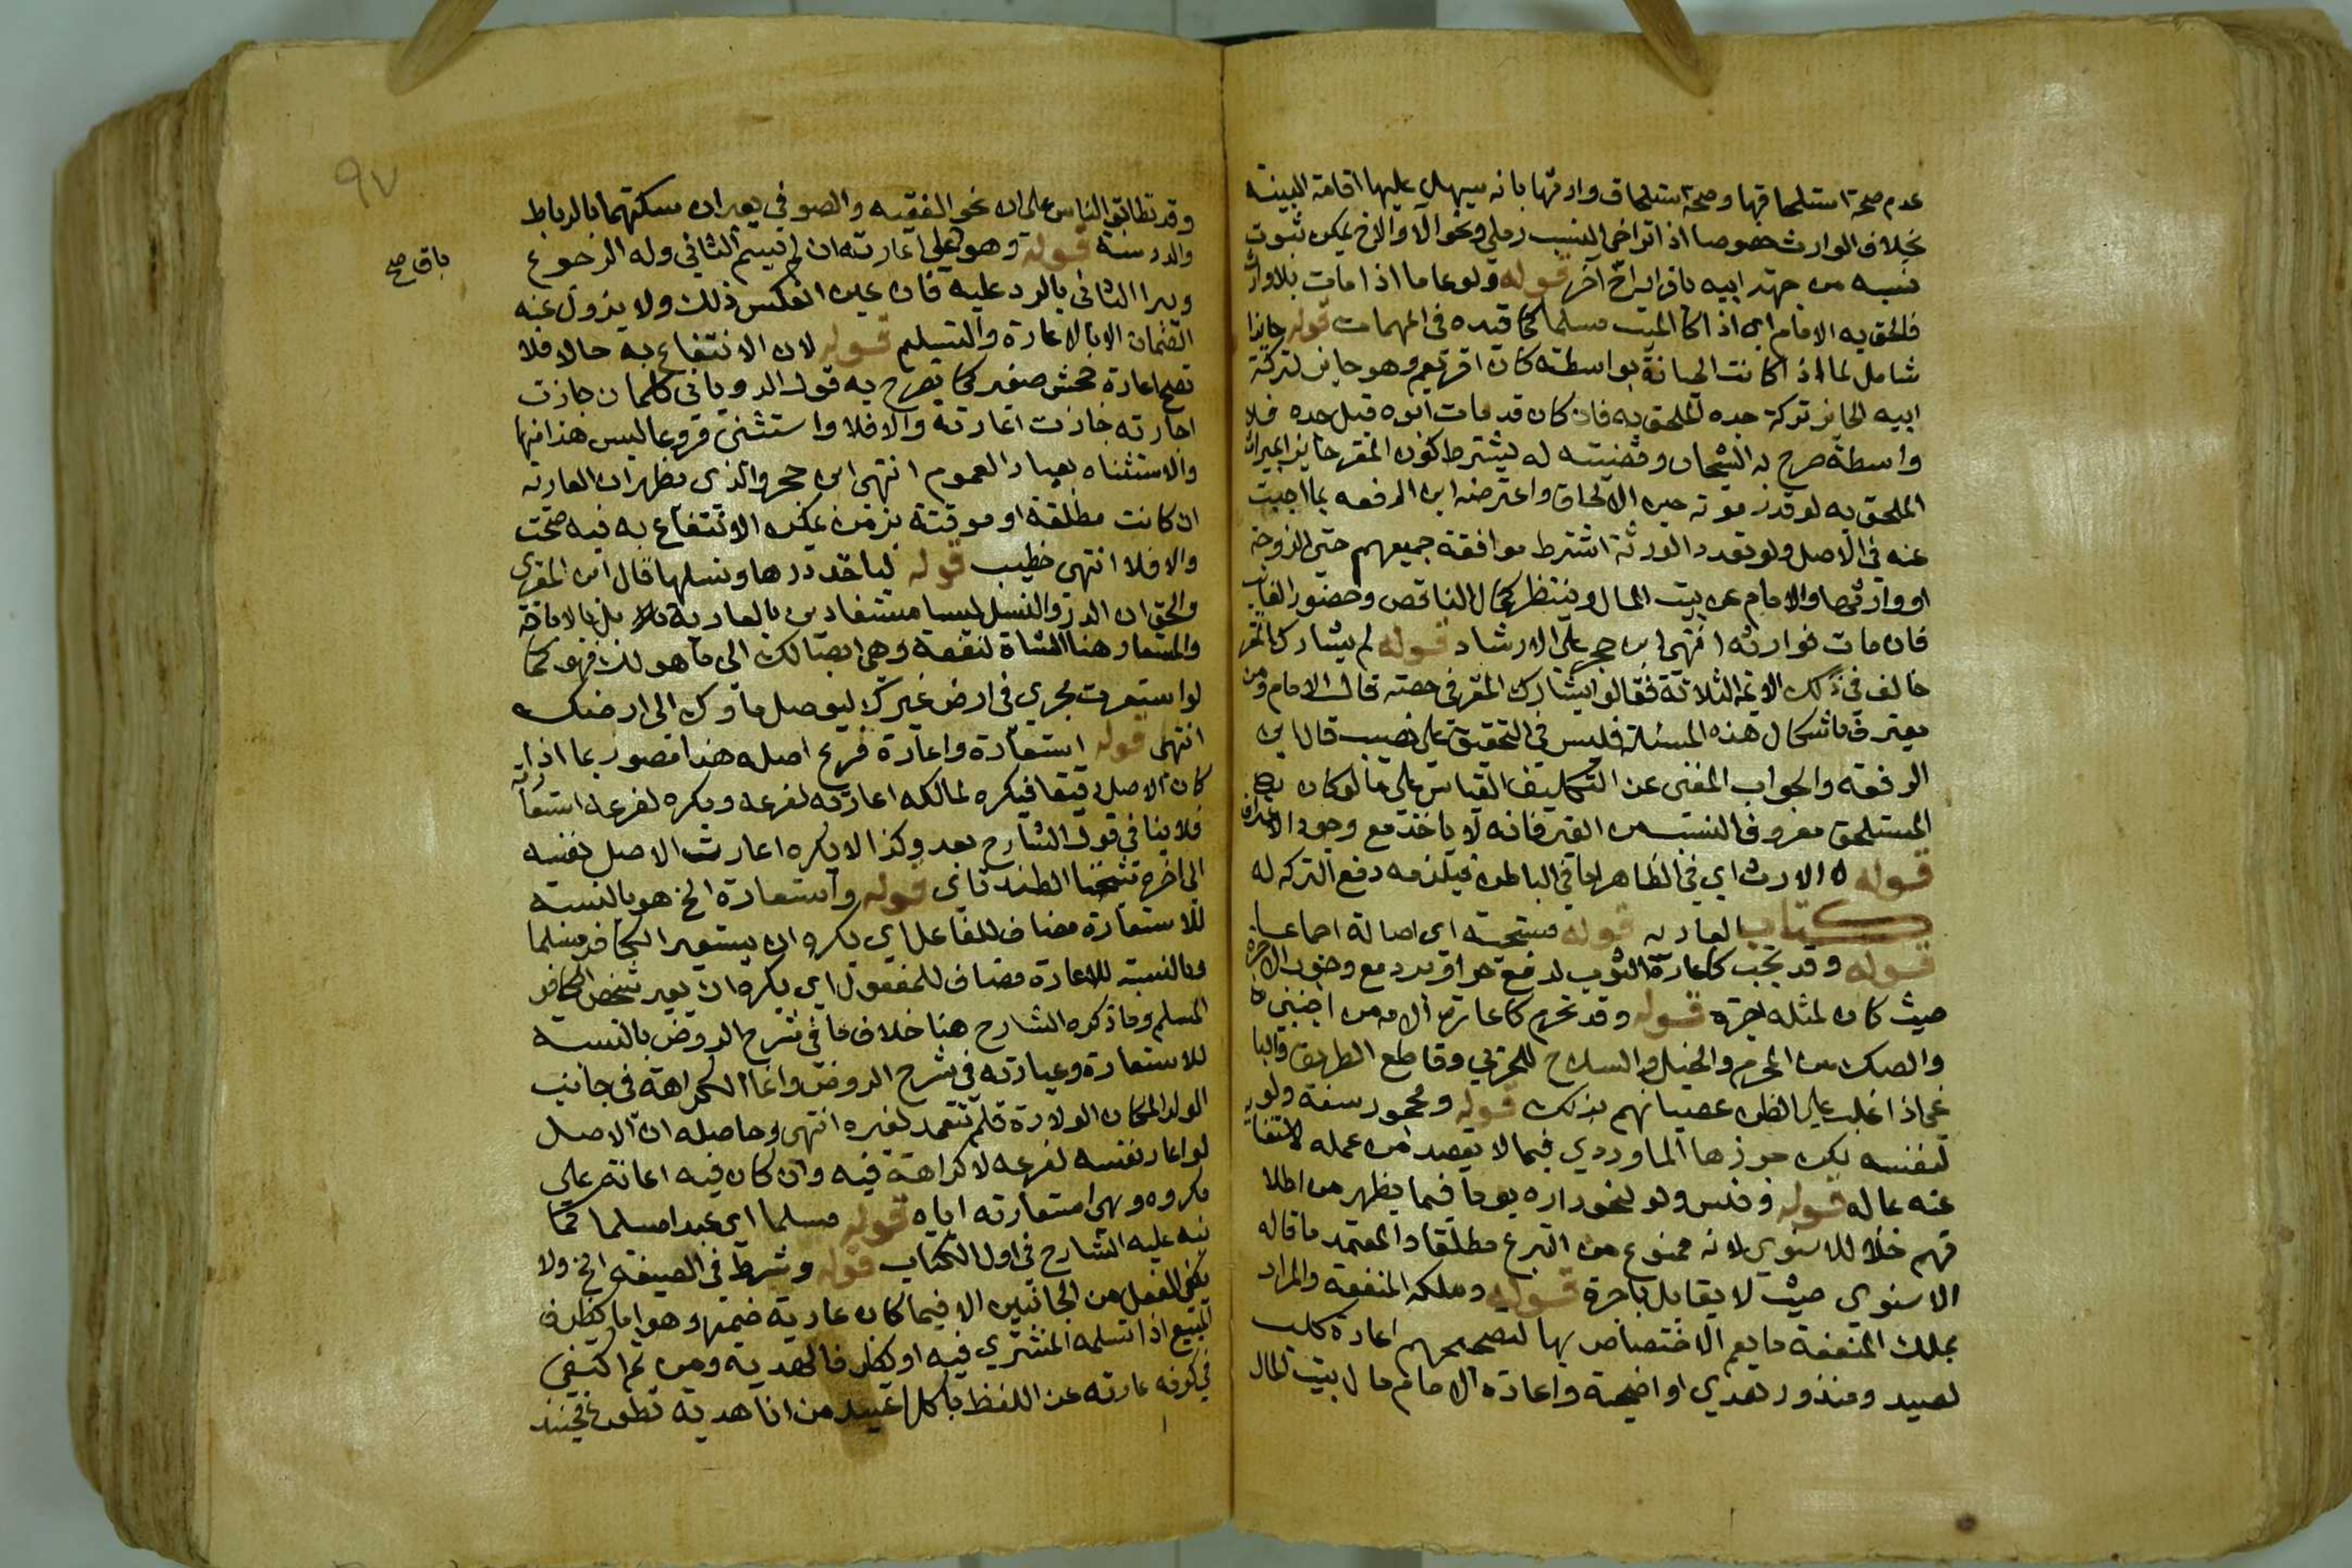 عدم صحة استلحاقها وصحة استلحاق وارثها بانه يسهل عليها اقامة البينة
بخلاف الوارث خصوصا اذا تراخى النسب رملي ونحو الاوالاخ يمكن ثبوت
نسبه من جهة ابيه باقرار اخ آخر قوله ولو عاما اذا مات بلا وارث
فالحق به الامام اي اذا كان الميت مسلما كما قيده في المهمات قوله حايزا
شامل لما اذا كانت الحيازة بواسطة كان اقر بعم وهو حايز لتركة
ابيه الحايز تركة جده الملحق به فان كان قد مات ابوه قبل جده فلا
واسطة صرح به الشيخان وقضيته له يشترط كون المقر حايز الميراث
الملحق به لو قدر موته حين الالحاق واعترضه ابن الرفعه بما اجبت
عنه في الاصل ولو تعدد الورثة اشترط موافقة جميعهم حتى الزوجة
او وارثها والامام عن بيت المال وينتظر كمال الناقص وحضور الغايب
فان مات فوارثه انتهى ابن حجر على الارشاد قوله لم يشارك المقر
خالف في ذلك الائمة الثلاثة فقالوا يشارك المقر في حصته قال الامام ومن
يعترف باشكال هذه المسئلة فليس في التحقيق على نصيب قال ابن
الرفعة والجواب المغني عن التكليف القياس على ما لو كان
المستلحق معروف النسب من الغير فانه لا ياخذ مع وجود الاعتراف
قوله الارث اي في الظاهر اما في الباطن فيلزمه دفع التركه له
كتاب العاريه قوله مستحبة اي اصالة اجماعا
قوله وقد تجب كاعارة الثوب لدفع حر او برد مع وجوب الاجرة
حيث كان لمثله اجرة قوله وقد تحرم كاعارة الامة من اجنبي
والصيد من المحرم والخيل والسلاح للحربي وقاطع الطريق والبا
غى اذا غلب على الظن عصيانهم بذلك قوله ومحجور سفه ولو
لنفسه لكن جوزها الماوردي فيما لا يقصد من عمله لاستغنا
ئه عنه بماله قوله وفلس ولو لنحو داره يوما فيما يظهر من اطلا
قهم خلافا للاسنوي لانه ممنوع من التبرع مطلقا والمعتمد ما قاله
الاسنوي حيث لا يقابل باجرة قوله وملكه المنفعة والمراد
بملك المنفعة ما يعم الاختصاص بها لتصحيحهم اعادة كلب
لصيد ومنذور هدي او اضحية واعارة الامام مال بيت المال
٩٧
وقد تطابق الناس على ان نحو الفقيه والصوفي يعيران مسكنهما بالرباط
والمدرسة قوله وهو على اعارته ان لم يسم الثاني وله الرجوع
باق صح
ويبرا الثاني بالرد عليه فان عين انعكس ذلك ولا يزول عنه
الضمان الا بالاعارة والتسليم قوله لان الانتفاع به حالا فلا
تصح اعارة جحش صغير كما يصرح به قول الروياني كلما ن جازت
اجارته جازت اعارته والافلا واستثنى فروعا ليس هذا منها
والاستثناء معيار العموم انتهى ابن حجر والذي يظهر ان العارية
ان كانت مطلقة او موقتة بزمن يمكن الانتفاع به فيه صحت
والافلا انتهى خطيب قوله لياخذ درها ونسلها قال ابن المقري
والحق ان الدر والنسل ليسا مستفادين بالعارية بل بالاباحة
والمستعار هنا الشاة لنفعه وهي ايصالك الى ما هو لك فهو كما
لو استعرت مجرى في ارض غيرك ليوصل ماؤك الى ارضك
انتهى قوله استعارة واعارة فرع اصله هنا مصور بما اذا
كان الاصل رقيقا فيكره لمالكه اعارته لفرعه ويكره لفرعه استعارته
فلا ينافي قول الشارح بعد وكذا لا يكره اعارة الاصل نفسه
الى اخره شيخنا الطندتاي قوله واستعارة الخ هو بالنسبة
للاستعارة مضاف للفاعل اي يكره ان يستعير الكافر مسلما
وبالنسبة للاعارة مضاف للمفعول اي يكره ان يعير شخص الكافر
المسلم وما ذكره الشارح هنا خلاف ما في شرح الروض بالنسبة
للاستعارة وعبارته في شرح الروض وانما الكراهة في جانب
الولد لمكان الولادة فلم تتعد لغيره انتهى وحاصله ان الاصل
لو اعار نفسه لفرعه لا كراهة فيه وان كان فيه اعانة على
مكروه وهي استعارته اياه قوله مسلما اي عبدا مسلما كما
نبه عليه الشارح في اول الكتاب قوله وشرط في الصيغة الخ ولا
يكفي الفعل من الجانبين الا فيما كان عارية ضمنه وهو اما كظرف
المبيع اذا تسلمه المشتري فيه او كظرف الهدية ومن ثم اكتفى
في كونه عارته عن اللفظ باكل من انا هدية تطوع فحينئذ